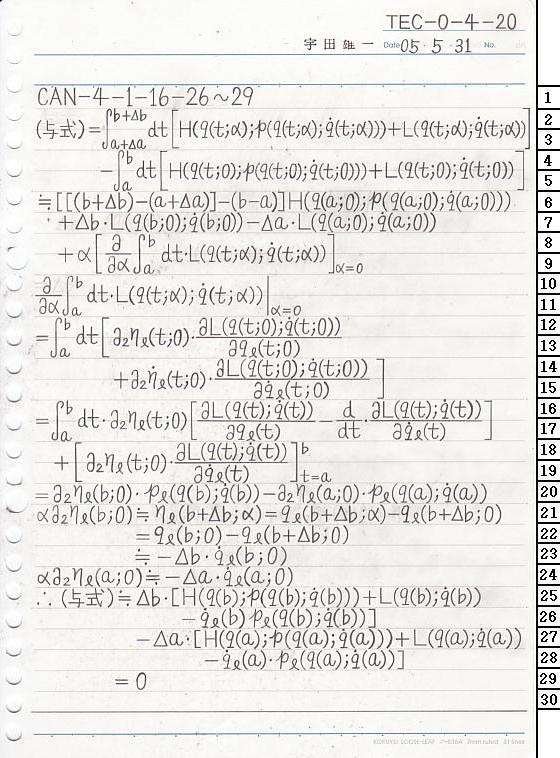 TEC-0-4-20
宇田雄一 Date 05・5・31 No.
CAN-4-1-16-26~29
(与式)=∫_{a+Δa}^{b+Δb}dt[H(q(t;α);p(q(t;α);q̇(t;α)))+L(q(t;α);q̇(t;α))]
-∫_a^b dt[H(q(t;0);p(q(t;0);q̇(t;0)))+L(q(t;0);q̇(t;0))]
≒[[(b+Δb)-(a+Δa)]-(b-a)]H(q(a;0);p(q(a;0);q̇(a;0)))
+Δb·L(q(b;0);q̇(b;0))-Δa·L(q(a;0);q̇(a;0))
+α[∂/∂α ∫_a^b dt·L(q(t;α);q̇(t;α))]_{α=0}
∂/∂α ∫_a^b dt·L(q(t;α);q̇(t;α))|_{α=0}
=∫_a^b dt[∂₂η_ℓ(t;0)·∂L(q(t;0);q̇(t;0))/∂q_ℓ(t;0)
+∂₂η̇_ℓ(t;0)·∂L(q(t;0);q̇(t;0))/∂q̇_ℓ(t;0)]
=∫_a^b dt·∂₂η_ℓ(t;0)[∂L(q(t);q̇(t))/∂q_ℓ(t)-d/dt·∂L(q(t);q̇(t))/∂q̇_ℓ(t)]
+[∂₂η_ℓ(t;0)·∂L(q(t);q̇(t))/∂q̇_ℓ(t)]_{t=a}^b
=∂₂η_ℓ(b;0)·p_ℓ(q(b);q̇(b))-∂₂η_ℓ(a;0)·p_ℓ(q(a);q̇(a))
α∂₂η_ℓ(b;0)≒η_ℓ(b+Δb;α)=q_ℓ(b+Δb;α)-q_ℓ(b+Δb;0)
=q_ℓ(b;0)-q_ℓ(b+Δb;0)
≒-Δb·q̇_ℓ(b;0)
α∂₂η_ℓ(a;0)≒-Δa·q̇_ℓ(a;0)
∴(与式)≒Δb·[H(q(b);p(q(b);q̇(b)))+L(q(b);q̇(b))
-q̇_ℓ(b)p_ℓ(q(b);q̇(b))]
-Δa·[H(q(a);p(q(a);q̇(a)))+L(q(a);q̇(a))
-q̇_ℓ(a)·p_ℓ(q(a);q̇(a))]
=0
KOKUYO LOOSE-LEAF ノ-836A 7mm ruled 31 lines
1
2
3
4
5
6
7
8
9
10
11
12
13
14
15
16
17
18
19
20
21
22
23
24
25
26
27
28
29
30